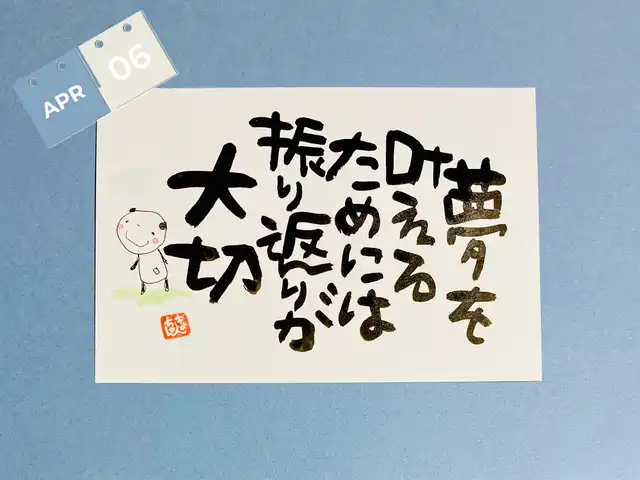 APR
06
夢を
叶える
ためには
振り返りが
大切